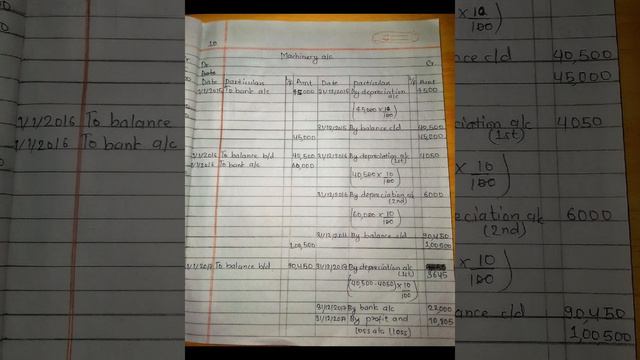 10
Machinery a/c
Dr. Cr.
Date
Date Particulars L/F Amt Date particulars L/F Amt
1/1/2015 To bank a/c 45000 31/12/2015 By depreciation a/c 4500
(45,000 × 10/100)
31/12/2015 By balance c/d 40,500
45,000 45,000
1/1/2016 To balance b/d 40,500 31/12/2016 By depreciation a/c (1st) 4050
1/1/2016 To bank a/c 60,000
(40,500 × 10/100)
31/12/2016 By depreciation a/c (2nd) 6000
(60,000 × 10/100)
31/12/2016 By balance c/d 90,450
1,00,500 1,00,500
1/1/2017 To balance b/d 90,450 31/12/2017 By depreciation a/c (1st) 3645
(40,500 - 4050) × 10/100
31/12/2017 By bank a/c 22,000
31/12/2017 By profit and 10,805
loss a/c (loss)
1/1/2016 To balance
1/1/2016 To bank a/c
× 10/100)
nce c/d 40,500
45,000
eciation a/c 4050
(1st)
× 10/100)
eciation a/c 6000
(2nd)
× 10/100)
ance c/d 90,450
1,00,500